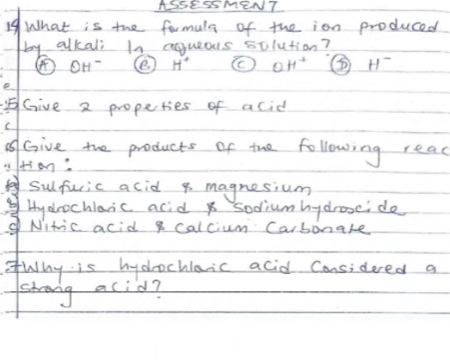 ASSESSMENT
14 What is the formula of the ion produced
by alkali in aqueous solution?
(A) OH⁻ (B) H⁺ (C) OH⁺ (D) H⁻
15 Give 2 properties of acid
16 Give the products of the following reac
tion:
a) Sulfuric acid & magnesium
b) Hydrochloric acid & Sodium hydroxide
c) Nitric acid & Calcium Carbonate
17 Why is hydrochloric acid Considered a
strong acid?